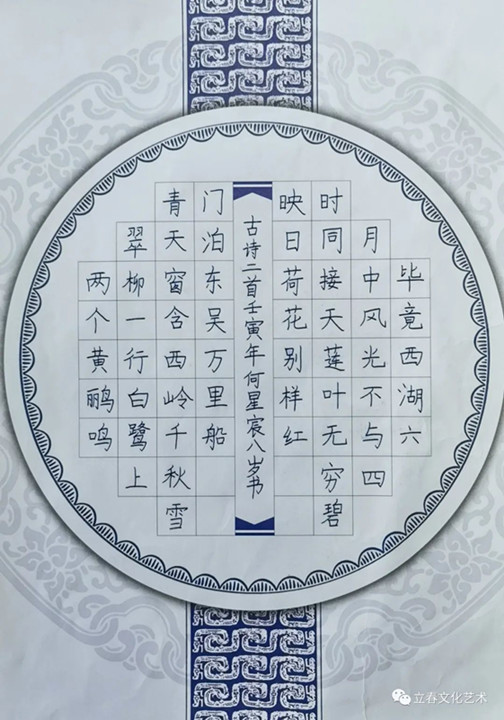 毕竟西湖六
月中风光不与四
时同接天莲叶无穷碧
映日荷花别样红
两个黄鹂鸣
翠柳一行白鹭上
青天窗含西岭千秋雪
门泊东吴万里船
古诗二首壬寅年何星宸八岁书
立春文化艺术